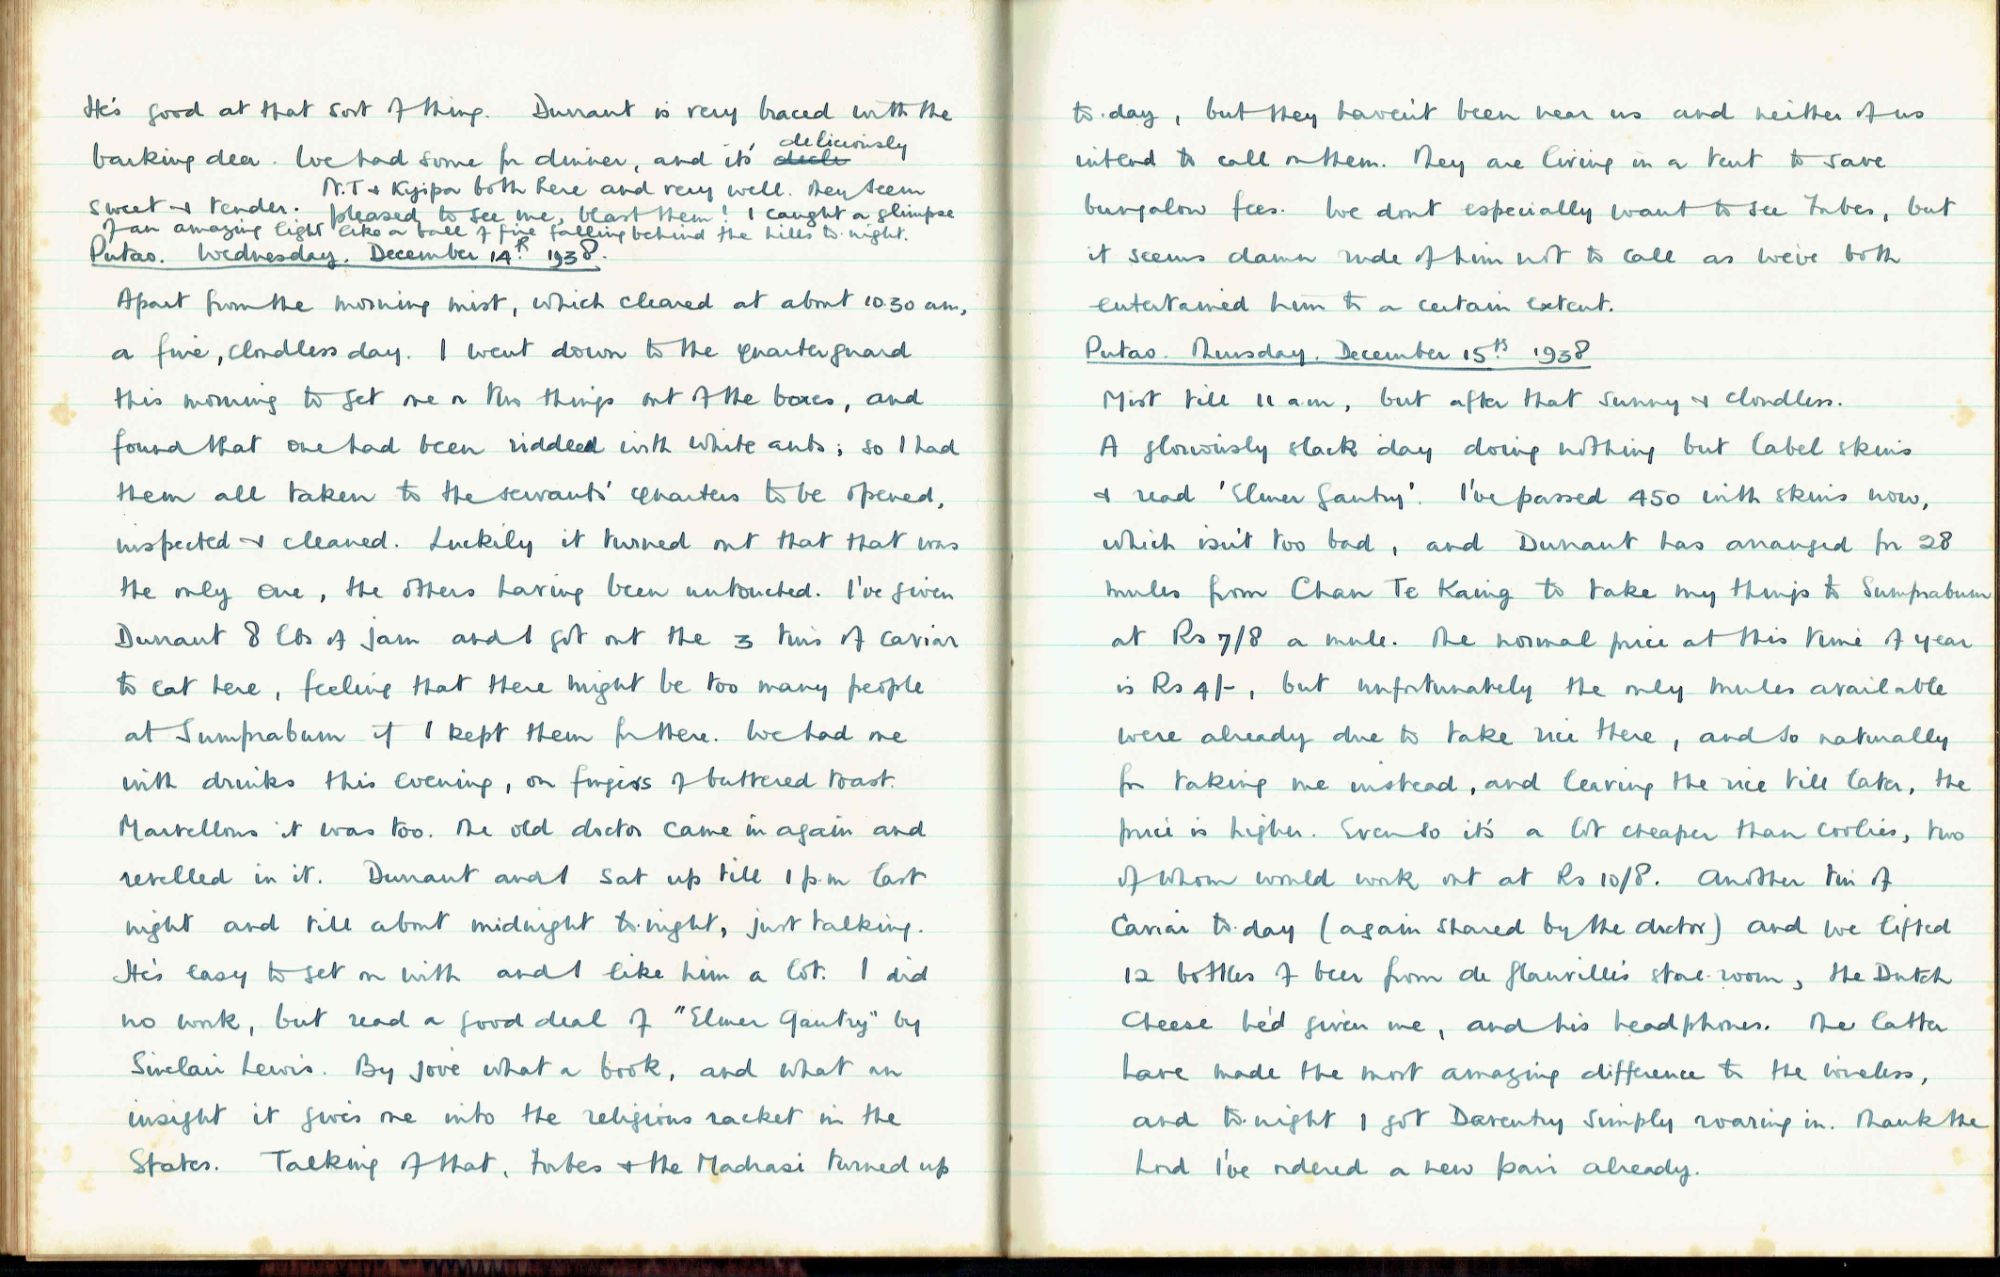 He's good at that sort of thing. Durrant is very braced with the
barking deer. We had some for dinner, and its deliciously
sweet & tender. N.T & Kyipa both here and very well. They seem
pleased to see me, blast them! I caught a glimpse
of an amazing light like a ball of fire falling behind the hills to-night.
Putao. Wednesday. December 14th 1938.
Apart from the morning mist, which cleared at about 10.30 am,
a fine, cloudless day. I went down to the quarterguard
this morning to get one or two things out of the boxes, and
found that one had been riddled with white ants; so I had
them all taken to the servants' quarters to be opened,
inspected & cleaned. Luckily it turned out that that was
the only one, the others having been untouched. I've given
Durrant 8 lbs of jam and I got out the 3 tins of caviar
to eat here, feeling that there might be too many people
at Sumprabum if I kept them for there. We had one
with drinks this evening, on fingers of buttered toast.
Marvellous it was too. The old doctor came in again and
revelled in it. Durrant and I sat up till 1 p.m last
night and till about midnight to-night, just talking.
He's easy to get on with and I like him a lot. I did
no work, but read a good deal of "Elmer Gantry" by
Sinclair Lewis. By jove what a book, and what an
insight it gives one into the religious racket in the
States. Talking of that, Forbes & the Madrasi turned up
to-day, but they haven't been near us and neither of us
intend to call on them. They are living in a tent to save
bungalow fees. We dont especially want to see Forbes, but
it seems damn rude of him not to call as we've both
entertained him to a certain extent.
Putao. Thursday. December 15th 1938
Mist till 11 a.m, but after that sunny & cloudless.
A gloriously slack day doing nothing but label skins
& read 'Elmer Gantry'. I've passed 450 with skins now,
which isn't too bad, and Durrant has arranged for 28
mules from Chan Te Kaing to take my things to Sumprabum
at Rs 7/8 a mule. The normal price at this time of year
is Rs 4/-, but unfortunately the only mules available
were already due to take rice there, and so naturally
for taking me instead, and leaving the rice till later, the
price is higher. Even so it's a lot cheaper than coolies, two
of whom would work out at Rs 10/8. Another tin of
Caviar to-day (again shared by the doctor) and we lifted
12 bottles of beer from de Glanville's store-room, the Dutch
Cheese he'd given me, and his headphones. The latter
have made the most amazing difference to the wireless,
and to-night I got Daventry simply roaring in. Thank the
Lord I've ordered a new pair already.